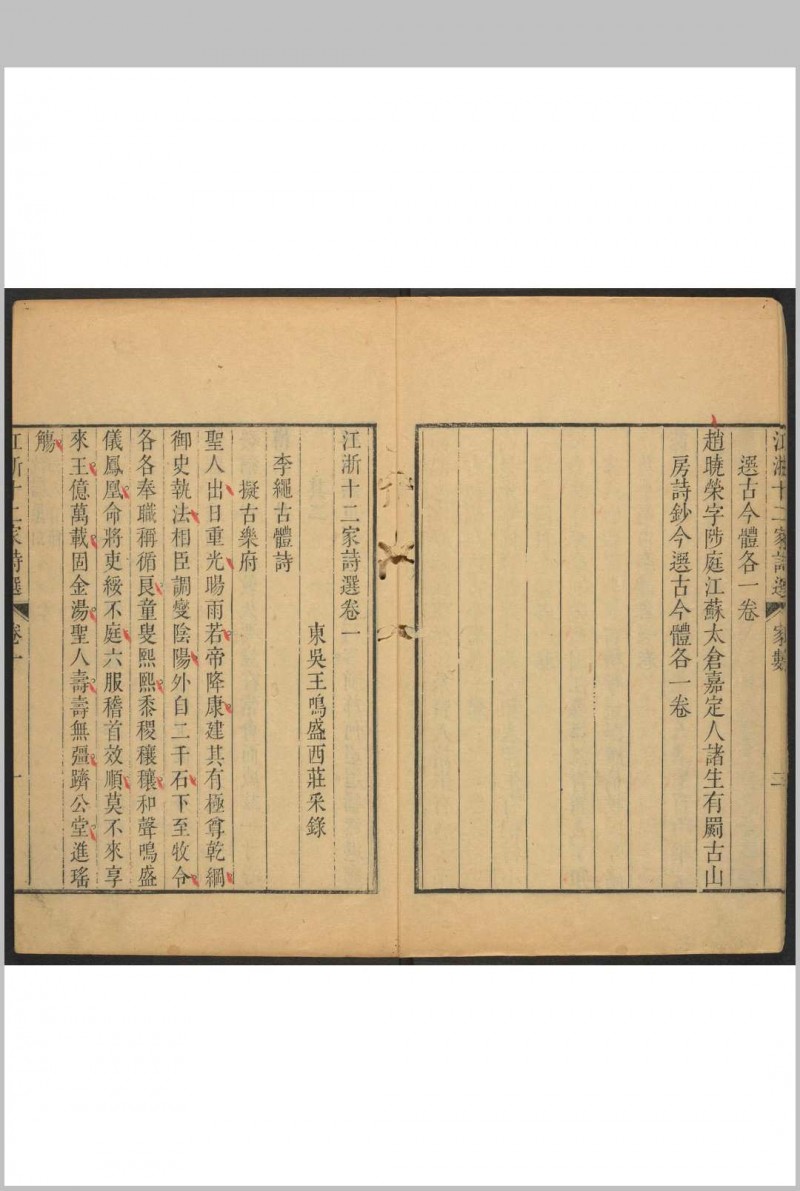 江浙十二家詩選 家數 三
選古今體各一卷
趙曉榮字陟庭江蘇太倉嘉定人諸生有屩古山
房詩鈔今選古今體各一卷
江浙十二家詩選卷一
東吳王鳴盛西莊采錄
李繩古體詩
擬古樂府
聖人出日重光暘雨若帝降康建其有極尊乾綱
御史執法相臣調燮陰陽外自二千石下至牧令
各各奉職稱循良童叟熙熙黍稷穰穰和聲鳴盛
儀鳳凰命將吏綏不庭六服稽首效順莫不來享
來王億萬載固金湯聖人壽壽無疆躋公堂進瑤
觴
江浙十二家詩選 卷一 一